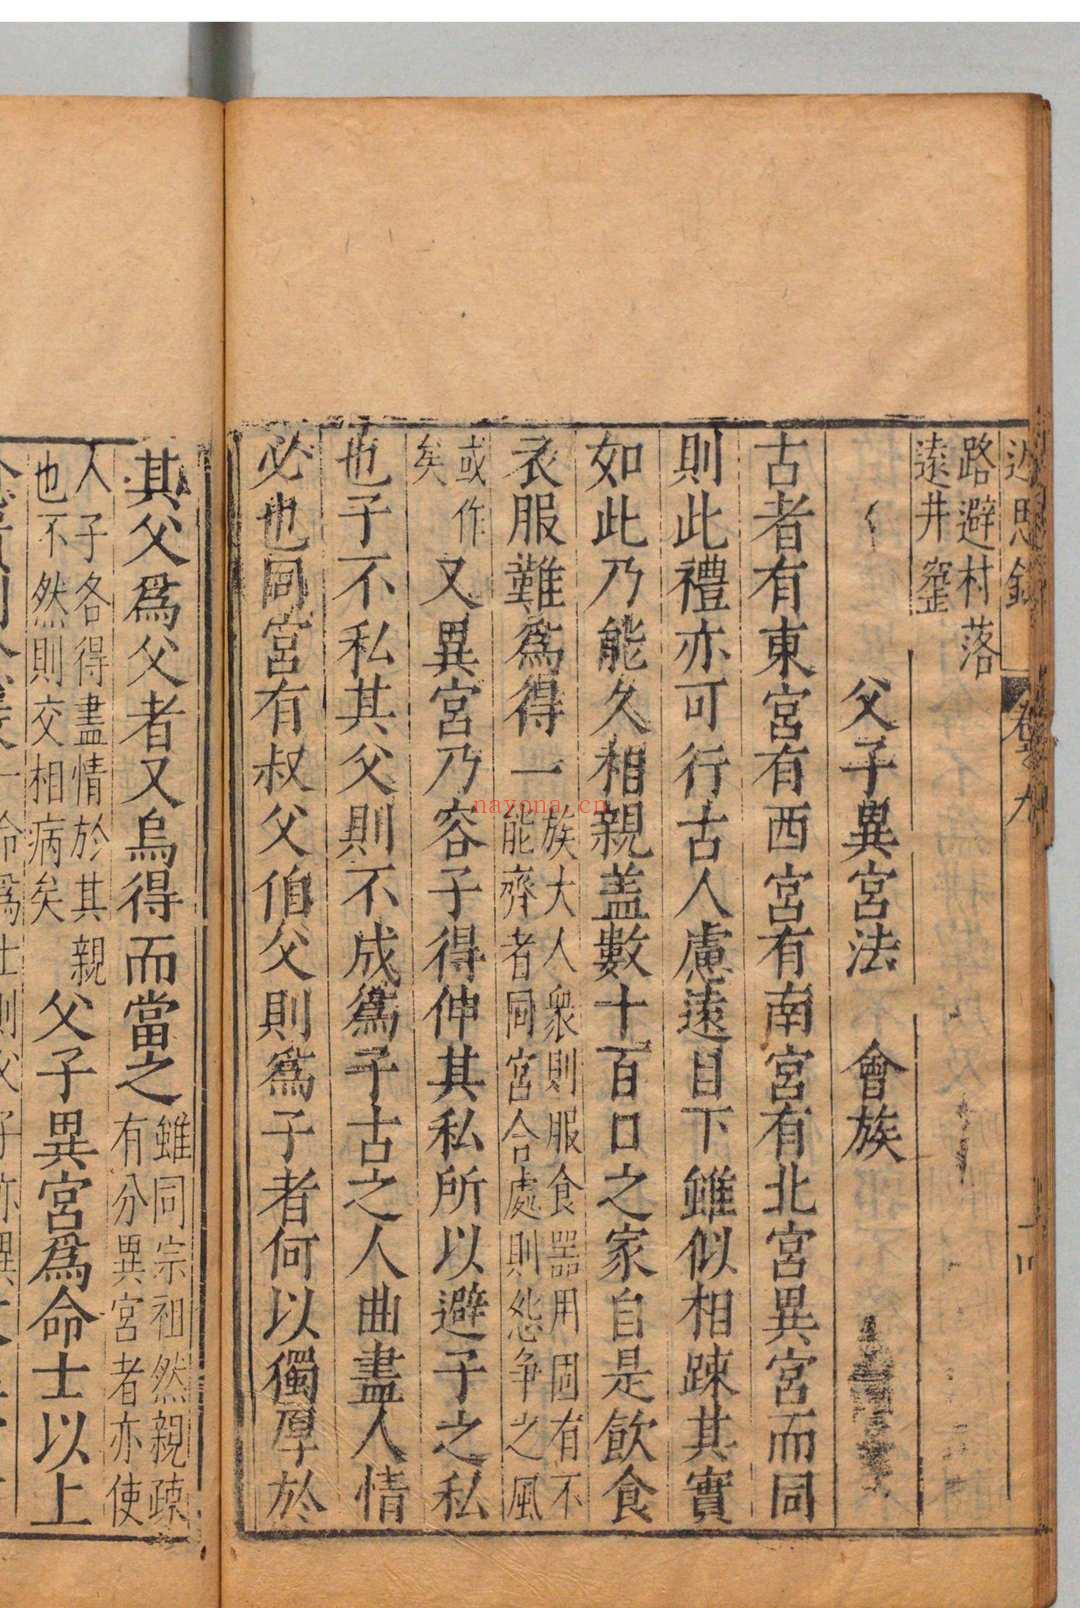 近思錄 卷九
路避村落
遠井窰
父子異宮法 會族
古者有東宮有西宮有南宮有北宮異宮而同
則此禮亦可行古人慮遠目下雖似相踈其實
如此乃能久相親盖數十百口之家自是飲食
衣服難爲得一族大人衆則服食器用固有不
能齊者同宮合處則怨争之風
或作
矣
又異宮乃容子得伸其私所以避子之私
也子不私其父則不成爲子古之人曲盡人情
必也同宮有叔父伯父則爲子者何以獨厚於
其父爲父者又烏得而當之雖同宗祖然親疎
有分異宮者亦使
人子各得盡情於其親
也不然則交相病矣
父子異宮爲命士以上
nayona.cn